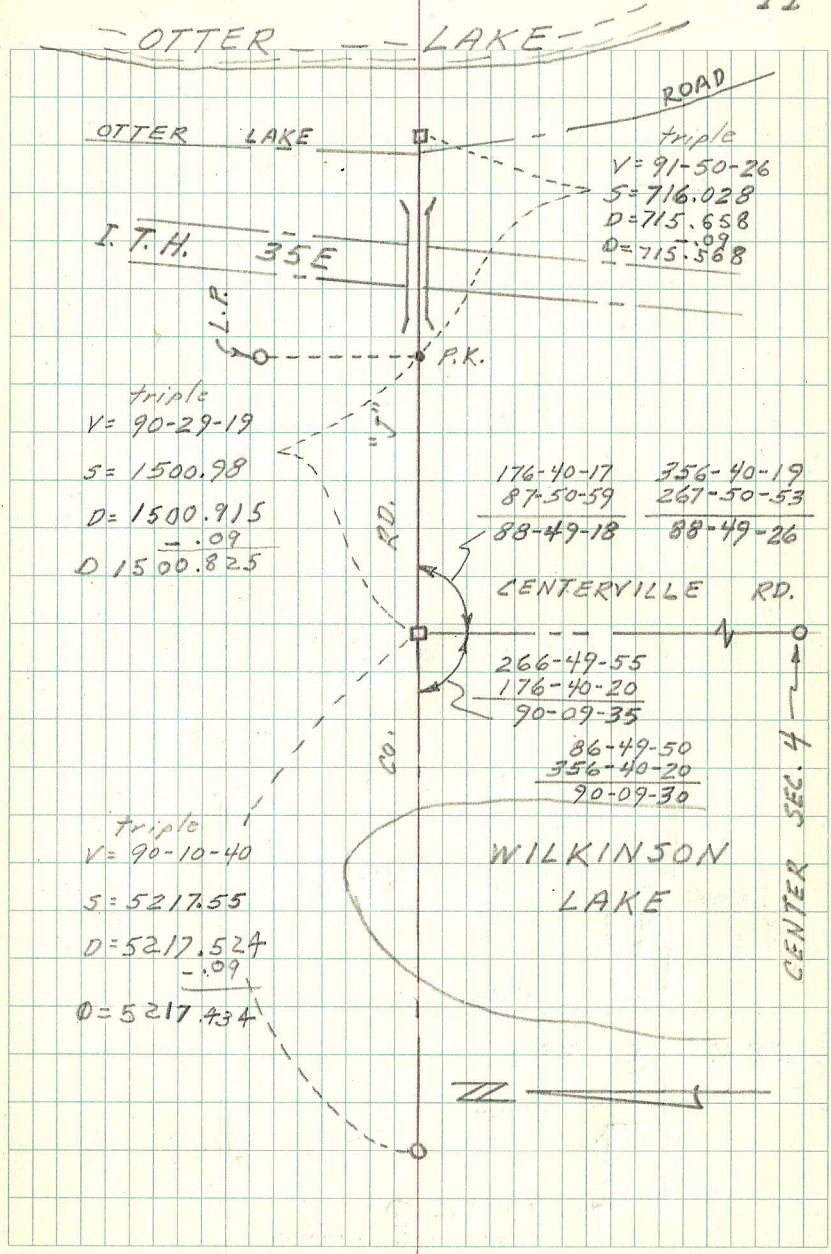 11
OTTER LAKE
ROAD
OTTER LAKE
triple
V= 91-50-26
S=716.028
D=715.658
-.09
D=715.568
I.T.H. 35E
L.P.
P.K.
triple
V= 90-29-19
S= 1500.98
D= 1500.915
- .09
D 1500.825
"J"
RD.
CO.
176-40-17
87-50-59
88-49-18
356-40-19
267-50-53
88-49-26
CENTERVILLE RD.
266-49-55
176-40-20
90-09-35
86-49-50
356-40-20
90-09-30
CENTER SEC. 4
triple
V= 90-10-40
S= 5217.55
D= 5217.524
-.09
D= 5217.434
WILKINSON
LAKE
N